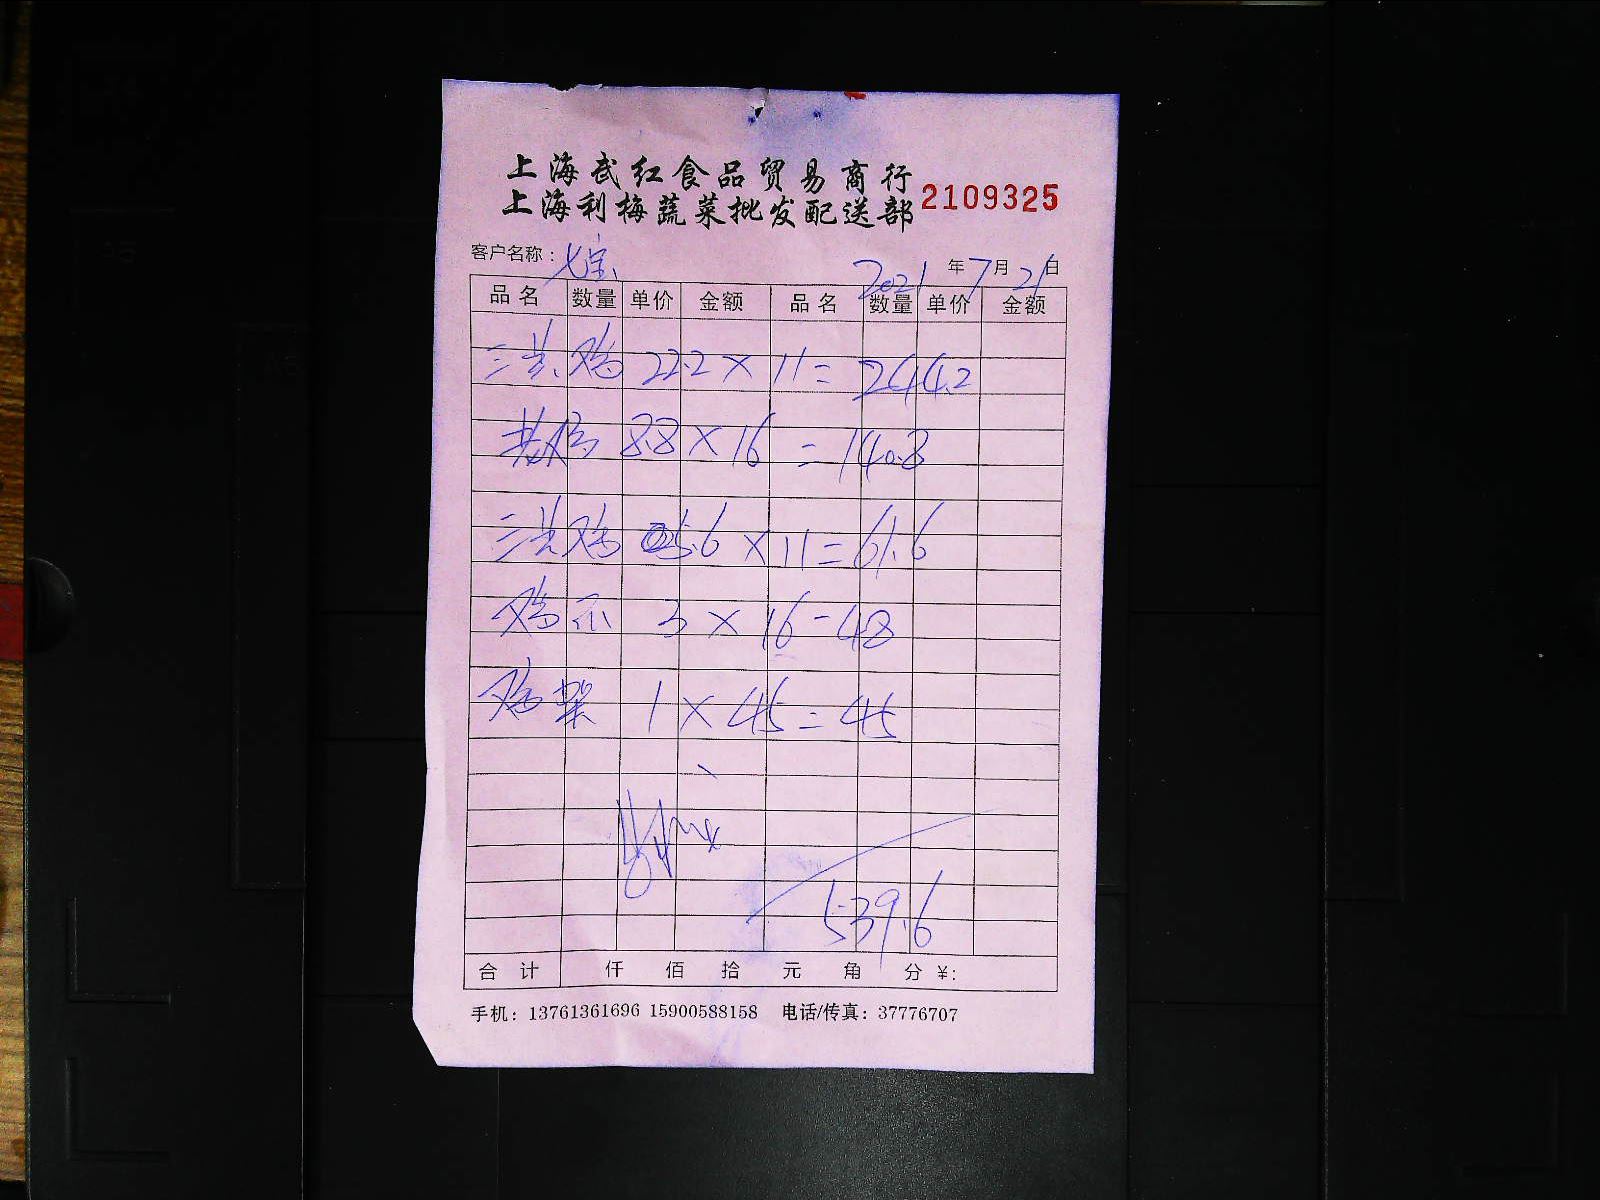 上海武红食品贸易商行
上海利梅蔬菜批发配送部 2109325
客户名称：七宝 2021年7月21日
品名 数量 单价 金额 品名 数量 单价 金额
三黄鸡 22.2×11=244.2
8.8×16=140.8
三黄鸡 5.6×11=61.6
鸡爪 3×16=48
鸡架 1×45=45
539.6
合计 仟 佰 拾 元 角 分 ¥:
手机：13761361696 15900588158 电话/传真：37776707